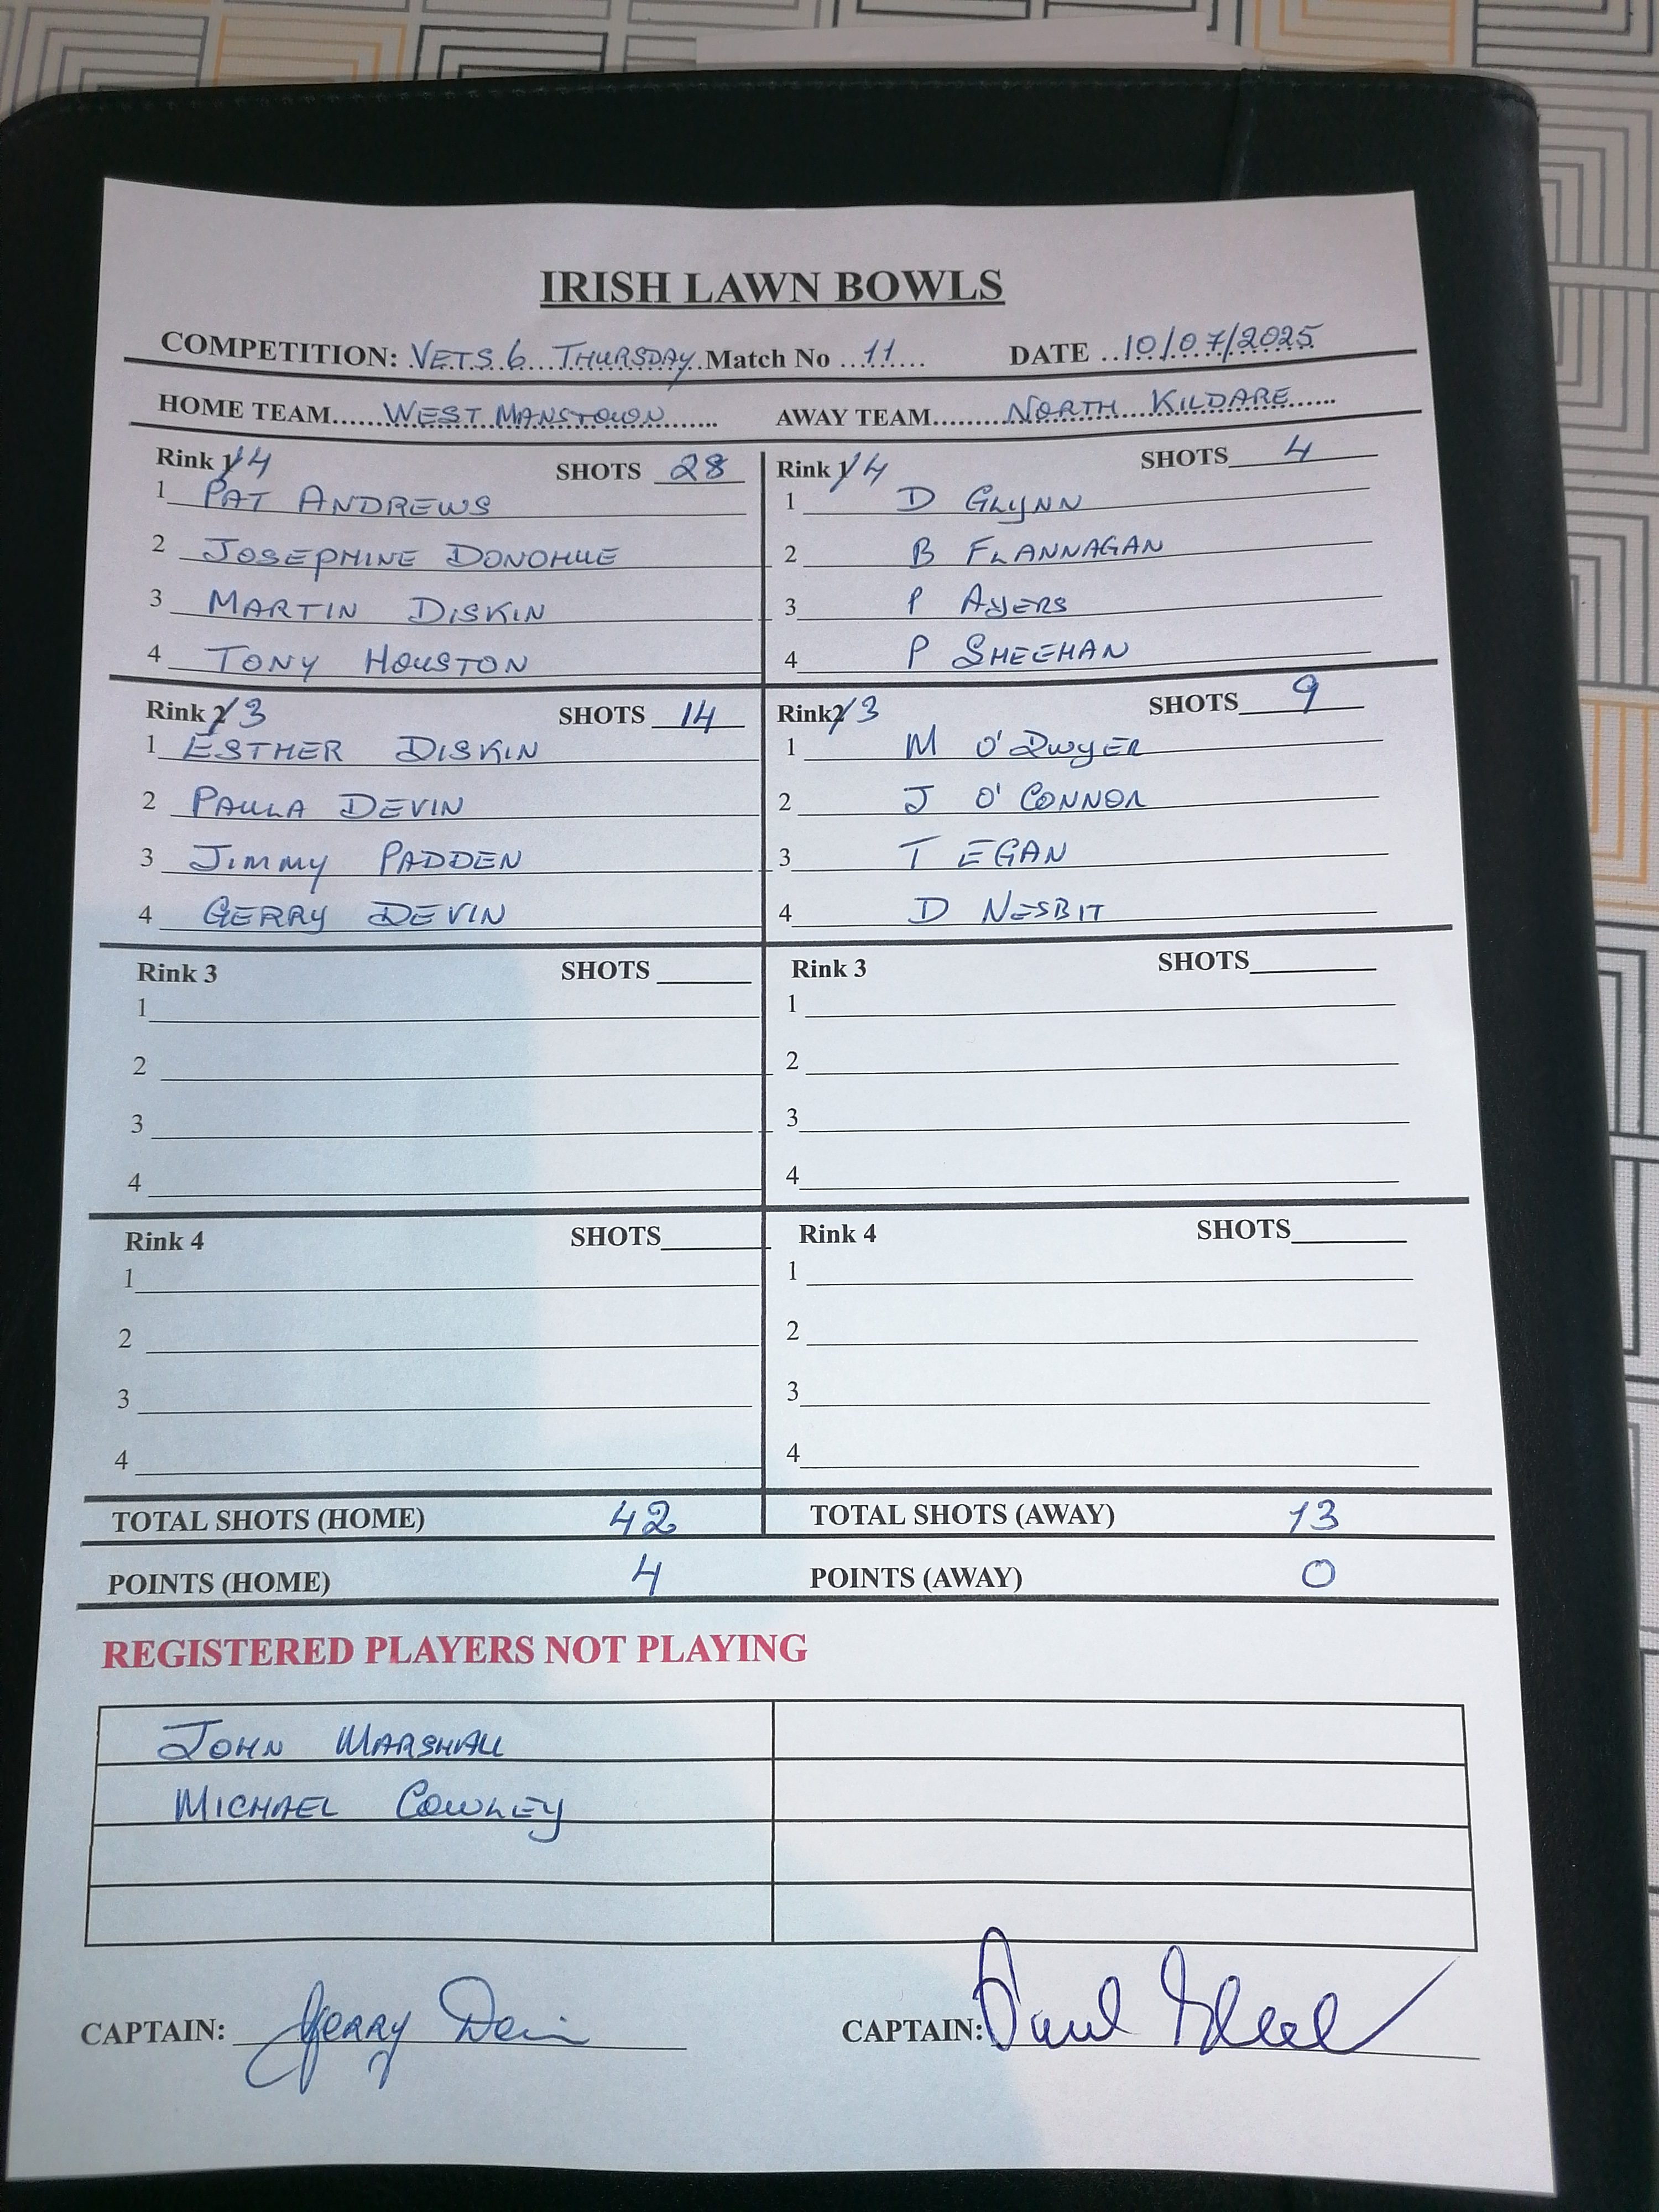 IRISH LAWN BOWLS
COMPETITION: VETS 6 THURSDAY Match No 11 DATE 10/07/2025
HOME TEAM WEST MANSTOWN AWAY TEAM NORTH KILDARE
Rink 1/4 SHOTS 28 Rink 1/4 SHOTS 4
1 PAT ANDREWS 1 D GLYNN
2 JOSEPHINE DONOHUE 2 B FLANNAGAN
3 MARTIN DISKIN 3 P AYERS
4 TONY HOUSTON 4 P SHEEHAN
Rink 2/3 SHOTS 14 Rink 2/3 SHOTS 9
1 ESTHER DISKIN 1 M O'DWYER
2 PAULA DEVIN 2 J O'CONNOR
3 JIMMY PADDEN 3 T EGAN
4 GERRY DEVIN 4 D NESBIT
Rink 3 SHOTS Rink 3 SHOTS
1 1
2 2
3 3
4 4
Rink 4 SHOTS Rink 4 SHOTS
1 1
2 2
3 3
4 4
TOTAL SHOTS (HOME) 42 TOTAL SHOTS (AWAY) 13
POINTS (HOME) 4 POINTS (AWAY) 0
REGISTERED PLAYERS NOT PLAYING
JOHN MARSHALL
MICHAEL COWLEY
CAPTAIN: Gerry Devin CAPTAIN: Paul